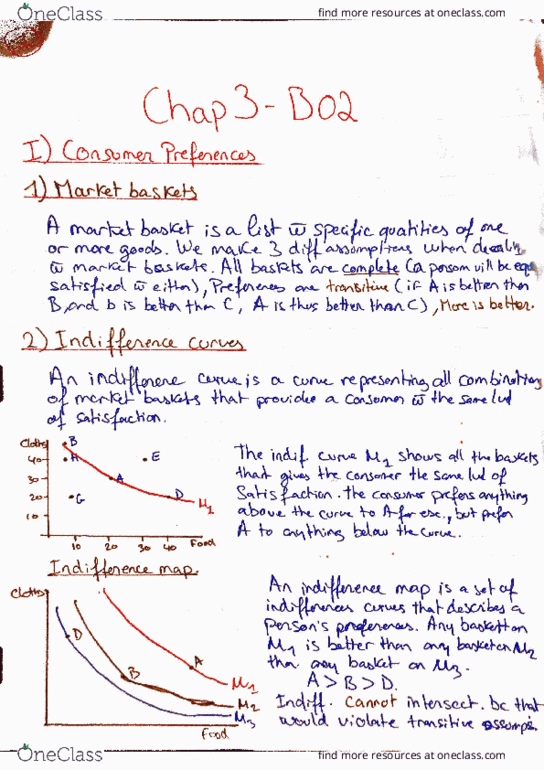 OneClass
find more resources at oneclass.com
Chap 3 - B02
I) Consumer Preferences
1) Market baskets
A market basket is a list w̅ specific quatities of one
or more goods. We make 3 diff assumptions when dealing
w̅ market baskets. All baskets are complete (a person will be equ
satisfied w̅ either), Preferences are transitive (if A is better than
B, and b is better than C, A is thus better than C), More is better.
2) Indifference curves
An indifference curve is a curve representing all combinations
of market baskets that provides a consumer w̅ the same lvl
of satisfaction.
Cloths
40
30
20
10
B
H
E
A
G
D
M1
10 20 30 40 Food
The indif curve M1 shows all the baskets
that gives the consumer the same lvl of
Satisfaction. The consumer prefers anything
above the curve to A for exe., but prefer
A to anything below the curve.
Indifference map
Cloths
D
B
A
M1
M2
M3
Food
An indifference map is a set of
indifferences curves that describes a
person's preferences. Any basket on
M1 is better than any basket on M2
than any basket on M3.
A > B > D.
Indiff. cannot intersect. bc that
would violate transitive assump.
OneClass
find more resources at oneclass.com